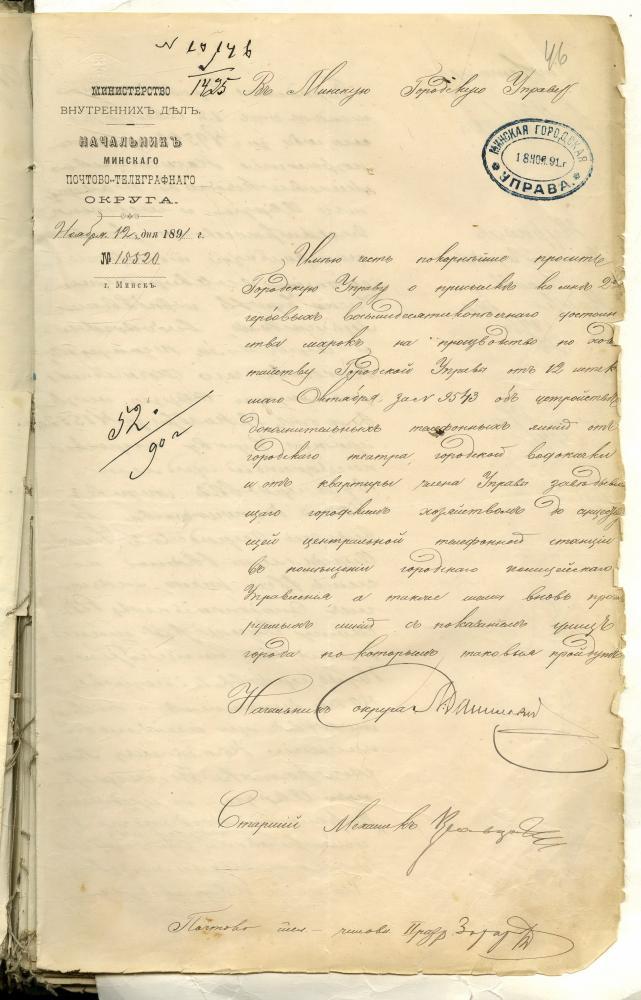 N 10146
1425
46
Въ Минскую Городскую Управу
МИНИСТЕРСТВО
ВНУТРЕННИХЪ ДѢЛЪ.
НАЧАЛЬНИКЪ
МИНСКАГО
ПОЧТОВО-ТЕЛЕГРАФНАГО
ОКРУГА.
Ноября 12 дня 1891 г.
№ 18520
г. Минскъ.
МИНСКАЯ ГОРОДСКАЯ
18 НОЯ. 91 г
УПРАВА.
Имѣю честь покорнѣйше просить
Городскую Управу о присылкѣ ко мнѣ 2хъ
гербовыхъ восьмидесятикопѣечнаго достоин
ства марокъ, на производство по хода
тайству Городской Управы отъ 12 истек
шаго Октября за N 9543 объ устройствѣ
дополнительныхъ телефонныхъ линій отъ
городскаго театра, городской водокачки
и отъ квартиры члена Управы завѣдываю
щаго городскимъ хозяйствомъ до существую
щей центральной телефонной станціи
въ помѣщеніи городскаго полицейскаго
Управленія, а также вновь
линій съ показаніемъ улицъ
города по которымъ таковыя пройдутъ
52.
90 г
Начальникъ округа
Старшій Механикъ
Почтово тел — чиновн